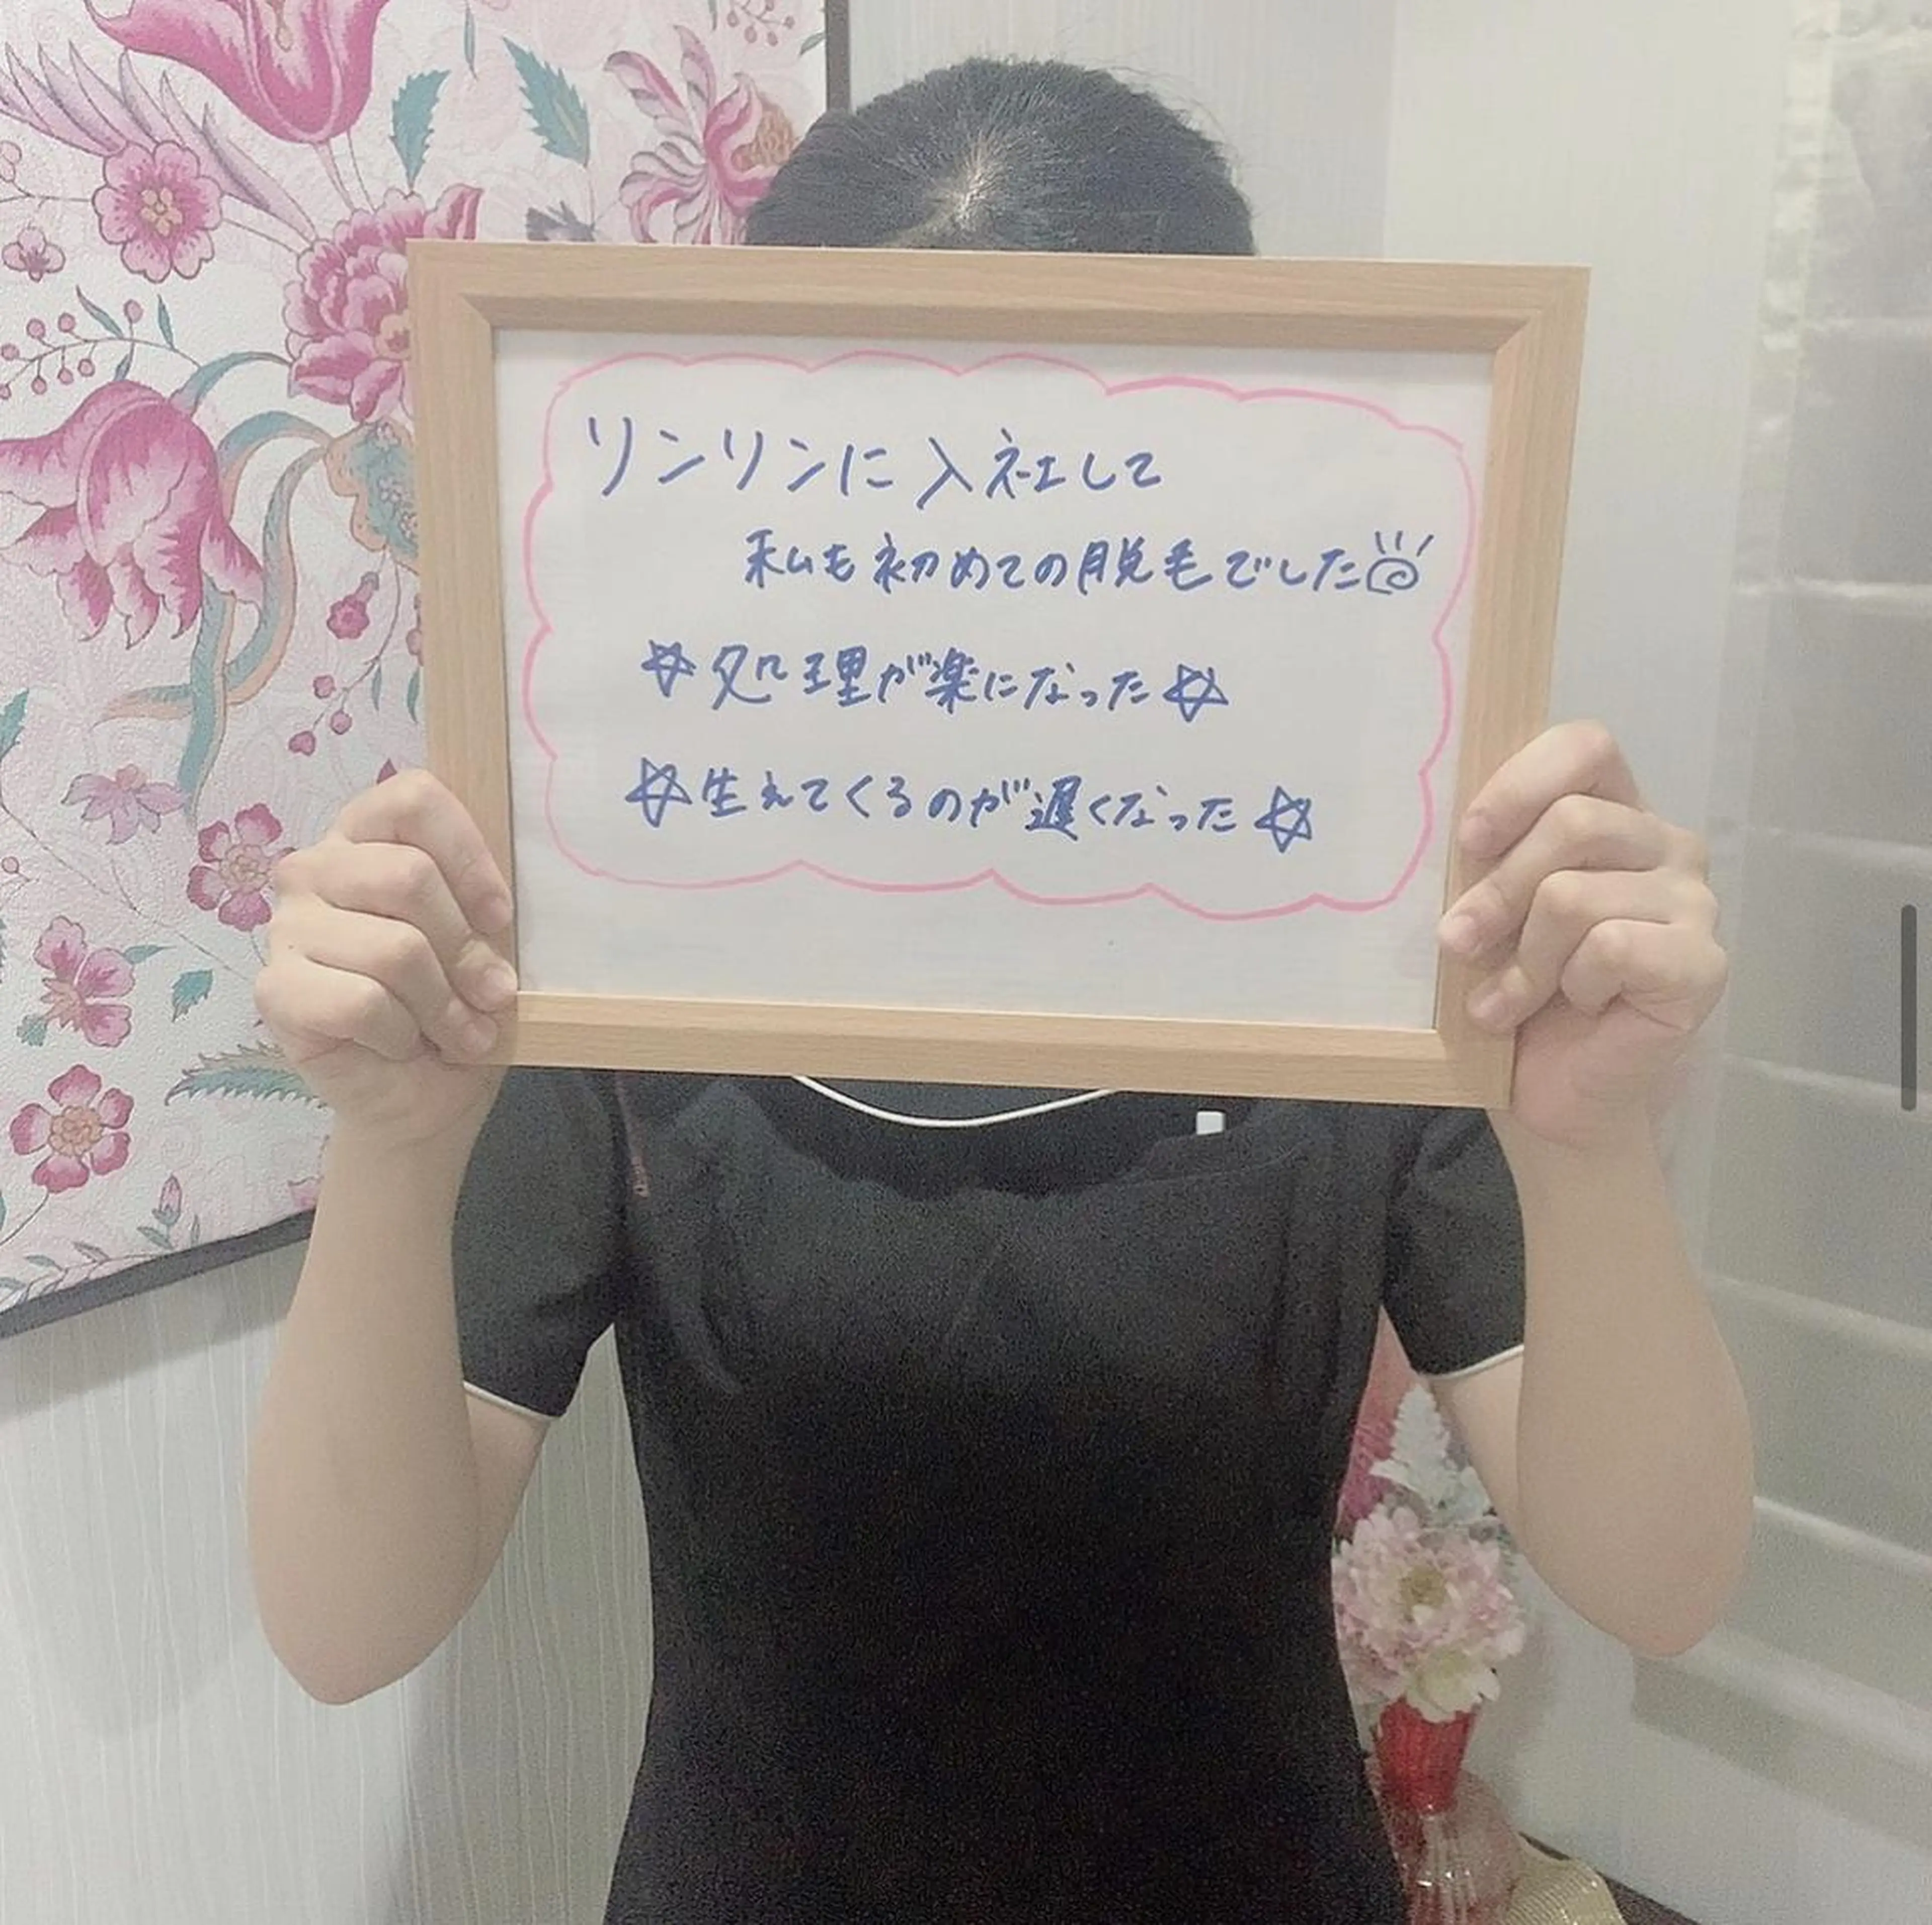 リンリンに入社して
私も初めての脱毛でした
☆処理が楽になった☆
☆生えてくるのが遅くなった☆